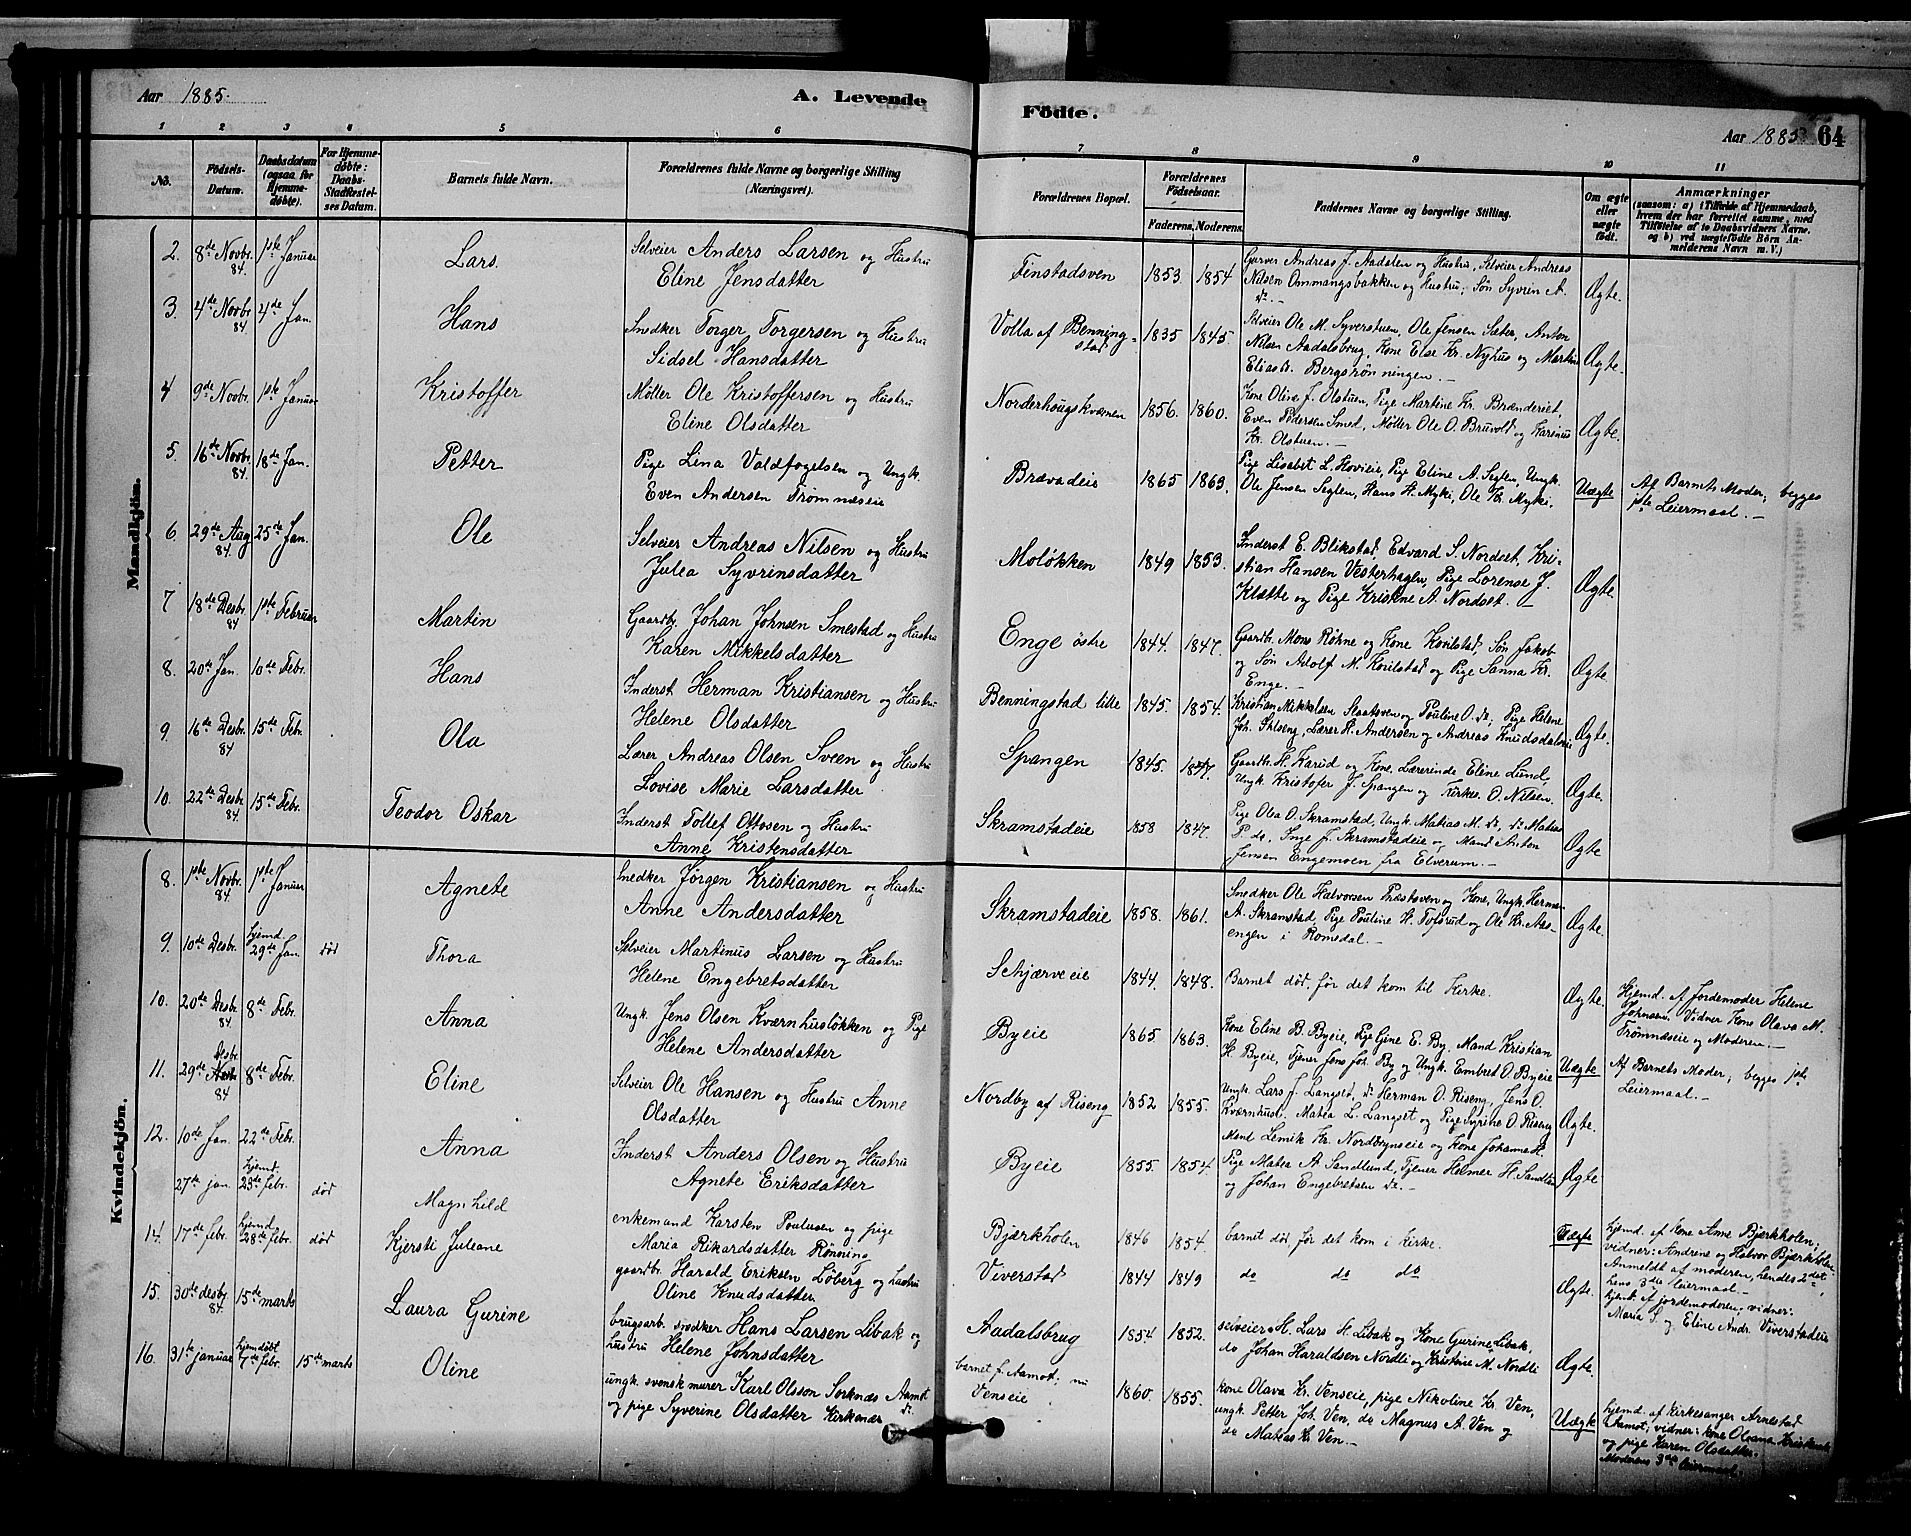 Aar 1885.
A. Levende
Födte.
Aar 1885
64
1 2 3 4 5 6 7 8 9 10 11
No.
Födsels-Datum.
Daabsdatum (ogsaa for Hjemmedöbte).
For Hjemmedöbte: Daabs-Stadfæstelses Datum.
Barnets fulde Navn.
Forældrenes fulde Navne og borgerlige Stilling (Næringsvei).
Forældrenes Bopæl.
Forældrenes Födselsaar.
Faderens. Moderens.
Faddernes Navne og borgerlige Stilling.
Om ægte eller uægte födt.
Anmærkninger
(saasom: a) i Tilfælde af Hjemmedaab, hvem der har forrettet samme, med Tilföielse af to Daabsvidners Navne, og b) ved uægtefödte Börn Anmelderens Navn m. V.)
Mandkjön.
2. 8de Novbr. 84. 1ste Januar Lars. Selveier Anders Larsen og Hustru
Eline Jensdatter
Finstadsven 1853. 1854 Garver Andreas J. Aadalen og Hustru, Selveier Andreas
Nilsen Ommangsbakken og Hustru, Søn Syvrin A.
do. - Ægte.
3. 4de Novbr. 84 4de Jan. Hans Snedker Torger Torgersen og Hustru
Sidsel Hansdatter
Volla af Benningstad 1835 1845. Selveier Ole M. Syverstuen, Ole Jensen Sæter, Anton
Nilsen Aadalsbrug, Kone Else Kr. Nyhus og Martin
Eliasdr. Bergsrønningen. - Ægte.
4 9de Novbr. 1ste Januar Kristoffer Møller Ole Kristoffersen og Hustru
Eline Olsdatter
Norderhougskværnen 1856. 1860. Kone Oline J. Olstuen, Pige Martine Kr. Brænderiet,
Even Pedersen Smed, Møller Ole O. Bruvold og Karinus
Kr. Olstuen. - Ægte.
5. 16de Novbr. 84 18de Jan. Petter Pige Lina Valdfogelsen og Ungk.
Even Andersen Trømnæseie
Brævadeie 1865 1863. Pige Lisabet L. Hovieie, Pige Eline A. Seglen, Ungk.
Ole Jensen Seglen, Hans H. Myki, Ole Kr. Myki. Uægte Af Barnets Moder; begges
1ste Leiermaal. -
6. 29de Aug 84. 25de Jan. Ole Selveier Andreas Nilsen og Hustru
Julea Syvrinsdatter
Moløkken 1849 1853. Inderst E. Blikstad, Edvard S. Nordset, Kri-
stian Hansen Vesterhagen, Pige Lorense J.
Klætte og Pige Kristine A. Nordset. - Ægte.
7 18de Desbr. 84 1ste Februar Martin Gaardbr. Johan Johnsen Smestad og Hustru
Karen Mikkelsdatter
Enge østre 1844. 1847. Gaardbr. Mons Røhne og Kone Korilstad, Søn Jakob
og Søn Adolf M. Korilstad og Pige Sanna Kr.
Enge. - Ægte.
8. 20de Jan. 10de Febr. Hans Inderst Herman Kristiansen og Hustru
Helene Olsdatter
Benningstad lille 1845. 1854. Kristian Mikkelsen Staatsven og Pouline O. do, Pige Helene
Joh. Ihlseng, Lærer H. Andersen og Andreas Knudsdalseie Ægte.
9. 16de Desbr. 84 15de Febr. Ola Lærer Andreas Olsen Sveen og Hustru
Lovise Marie Larsdatter
Spangen 1845. 1847. Gaardbr. H. Farid og Kone, Lærerinde Eline Lund,
Ungk. Kristofer J. Spangen og Kirkes. O. Nilsen. Ægte.
10. 22de Desbr. 84. 15de Febr. Teodor Oskar Inderst Tollef Ottosen og Hustru
Anne Kristensdatter
Skramstadeie 1858 1847. Pige Olea O. Skramstad, Ungk. Matias M. do, do Matias
P. do, Inge J. Skramstadeie og Mand Anton
Jensen Engemoen fra Elverum. - Ægte
Kvindekjön.
8. 1ste Novbr. 84. 1ste Januar Agnete Snedker Jørgen Kristiansen og Hustru
Anne Andersdatter
Skramstadeie 1858. 1861. Snedker Ole Halvorsen Præstsven og Kone, Ungk. Herman
A. Skramstad, Pige Pouline H. Tofsrud og Ole Kr. Aas-
engen i Romedal. - Ægte.
9. 10de Desbr. hjemd. 29de Jan. død Thora Selveier Martinus Larsen og Hustru
Helene Engebretsdatter
Schjærveeie 1844. 1848. Barnet død, før det kom til Kirke. Ægte. Hjemd. af Jordemoder Helene
Johnsen. Vidner Kone Olava M.
Trømnæseie og Moderen. -
10. 20de Desbr. 84 8de Febr. Anna Ungk. Jens Olsen Kværnhusløkken og Pige
Helene Andersdatter
Byeie 1865 1863. Kone Eline B. Byeie, Pige Gine E. By, Mand Kristian
H. Byeie, Tjener Jens Joh. By og Ungk. Embret O. Byeie Uægte Af Barnets Moder; begges 1ste
Leiermaal. -
11. 29de Desbr. 84 8de Febr. Eline Selveier Ole Hansen og Hustru Anne
Olsdatter
Nordby af Riseng 1852 1855. Ungk. Lars J. Langset, do Herman O. Riseng, Jens O.
Kværnhusl. Matea L. Langset og Pige Syrine O. Riseng Ægte.
12. 10de Jan. 22de Febr. Anna Inderst Anders Olsen og Hustru
Agnete Eriksdatter
Byeie 1855. 1854. Mand Lemik Kr. Nordbyseie og Kone Johanna H.
Pige Matea A. Sandlund, Tjener Helmer H. Sandlun
og Johan Engebretsen do. - Ægte
27de jan. hjemd. 25de febr. død Magnhild enkemand Karsten Poulusen og pige
Maria Rikardsdatter Rønning
Bjærkholen 1846 1854. barnet død før det kom i kirke. Uægte hjemd. af kone Anne Bjerkholen,
vidner: Andrene og Halvor Bjerkholen
Anmeldt af moderen, hendes 2det,
hans 3de leiermaal. -
14. 17de febr. hjemd. 28de febr. død Kjersti Juleane gaardbr. Harald Eriksen Løberg og hustru
Oline Knudsdatter
Viverstad 1844 1849 do do do Ægte. hjemd. af jordemoderen, vidner:
Maria S. og Eline Andr. Viverstadeie
15. 30te desbr. 84. 15de marts Laura Gurine brugsarb. snedker Hans Larsen Libak og
hustru Helene Johnsdatter
Aadalsbrug 1854 1852. selveier H. Lars H. Libak og Kone Gurine Libak,
do Johan Haraldsen Nordli og Kristine M. Nordli Ægte.
16. 31te januar hjemdøbt 7de febr. 15de marts Oline ungk. svensk murer Karl Olsson Sorknæs Aamot
og pige Syverine Olsdatter Kirkenær do.
barnet f. Aamot; nu
Venseie 1860. 1855. kone Olava Kr. Venseie, pige Nikoline Kr. Ven,
ungk. Petter Joh. Ven, do Magnus A. Ven og
do Matias Kr. Ven. - Uægte hjemd. af kirkesanger Arnestad
i Aamot, vidner: kone Oleana Kristiansen
og pige Karen Olsdatter.
Moderens 3de leiermaal.